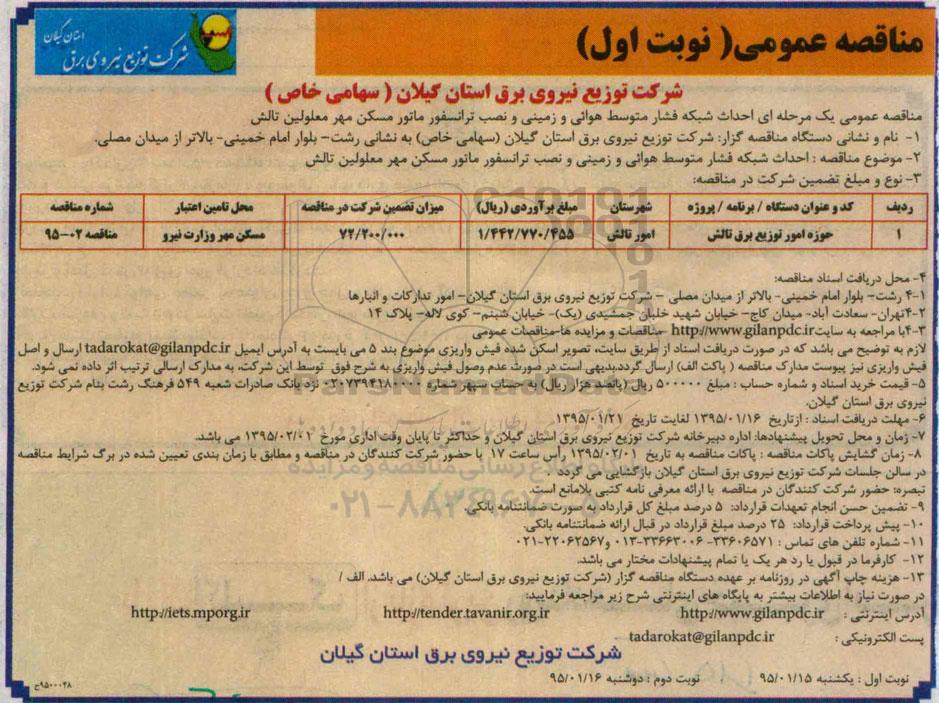 مناقصه عمومی( نوبت اول)
استان گیلان
شرکت توزیع نیروی برق
شرکت توزیع نیروی برق استان گیلان ( سهامی خاص )
مناقصه عمومی یک مرحله ای احداث شبکه فشار متوسط هوائی و زمینی و نصب ترانسفور ماتور مسکن مهر معلولین تالش
۱- نام و نشانی دستگاه مناقصه گزار: شرکت توزیع نیروی برق استان گیلان (سهامی خاص) به نشانی رشت- بلوار امام خمینی- بالاتر از میدان مصلی.
۲- موضوع مناقصه : احداث شبکه فشار متوسط هوائی و زمینی و نصب ترانسفور ماتور مسکن مهر معلولین تالش
۳- نوع و مبلغ تضمین شرکت در مناقصه:
ردیف کد و عنوان دستگاه / برنامه / پروژه شهرستان مبلغ برآوردی (ریال) میزان تضمین شرکت در مناقصه محل تامین اعتبار شماره مناقصه
۱ حوزه امور توزیع برق تالش امور تالش ۱/۴۴۲/۷۷۰/۴۵۵ ۷۲/۲۰۰/۰۰۰ مسکن مهر وزارت نیرو مناقصه ۰۲-۹۵
۴- محل دریافت اسناد مناقصه:
۴-۱ رشت- بلوار امام خمینی- بالاتر از میدان مصلی - شرکت توزیع نیروی برق استان گیلان- امور تدارکات و انبارها
۴-۲تهران- سعادت آباد- میدان کاج- خیابان شهید خلبان جمشیدی (یک)- خیابان شبنم- کوی لاله- پلاک ۱۴
۴-۳با مراجعه به سایت http://www.gilanpdc.ir -مناقصات و مزایده ها-مناقصات عمومی
لازم به توضیح می باشد که در صورت دریافت اسناد از طریق سایت، تصویر اسکن شده فیش واریزی موضوع بند ۵ می بایست به آدرس ایمیل tadarokat@gilanpdc.ir ارسال و اصل
فیش واریزی نیز پیوست مدارک مناقصه ( پاکت الف) ارسال گردد.بدیهی است در صورت عدم وصول فیش واریزی به شرح فوق توسط این شرکت، به مدارک ارسالی ترتیب اثر داده نمی شود.
۵- قیمت خرید اسناد و شماره حساب : مبلغ ۵۰۰۰۰۰ ریال (پانصد هزار ریال) به حساب سپهر شماره ۰۲۰۷۳۹۴۱۸۰۰۰ نزد بانک صادرات شعبه ۵۴۹ فرهنگ رشت بنام شرکت توزیع
نیروی برق استان گیلان.
۶- مهلت دریافت اسناد : ازتاریخ ۱۳۹۵/۰۱/۱۶ لغایت تاریخ ۱۳۹۵/۰۱/۲۱
۷- زمان و محل تحویل پیشنهادها: اداره دبیرخانه شرکت توزیع نیروی برق استان گیلان و حداکثر تا پایان وقت اداری مورخ ۱۳۹۵/۰۲/۰۱ می باشد.
۸- زمان گشایش پاکات مناقصه : پاکات مناقصه به تاریخ ۱۳۹۵/۰۲/۰۱ رأس ساعت ۱۷ با حضور شرکت کنندگان در مناقصه و مطابق با زمان بندی تعیین شده در برگ شرایط مناقصه
در سالن جلسات شرکت توزیع نیروی برق استان گیلان بازگشایی می گردد .
تبصره: حضور شرکت کنندگان در مناقصه با ارائه معرفی نامه کتبی بلامانع است.
۹- تضمین حسن انجام تعهدات قرارداد: ۵ درصد مبلغ کل قرارداد بصورت ضمانتنامه بانکی
۱۰- پیش پرداخت قرارداد: ۲۵ درصد مبلغ قرارداد در قبال ارائه ضمانتنامه بانکی.
۱۱- شماره تلفن های تماس : ۳۳۶۰۶۵۷۱- ۳۳۶۶۳۰۰۶-۰۱۳ و۲۲۰۶۲۵۶۷-۰۲۱
۱۲- کارفرما در قبول یا رد هر یک یا تمام پیشنهادات مختار می باشد.
۱۳- هزینه چاپ آگهی در روزنامه بر عهده دستگاه مناقصه گزار (شرکت توزیع نیروی برق استان گیلان) می باشد. الف /
در صورت نیاز به اطلاعات بیشتر به پایگاه های اینترنتی شرح زیر مراجعه فرمایید:
آدرس اینترنتی : http://www.gilanpdc.ir http://tender.tavanir.org.ir http://iets.mporg.ir
پست الکترونیکی : tadarokat@gilanpdc.ir
شرکت توزیع نیروی برق استان گیلان
نوبت اول : یکشنبه ۹۵/۰۱/۱۵ نوبت دوم : دوشنبه ۹۵/۰۱/۱۶
۹۵۰۰۰۴۸ج
ParsNamadData
۰۲۱-۸۸۳۴۹۶۷۰-۵